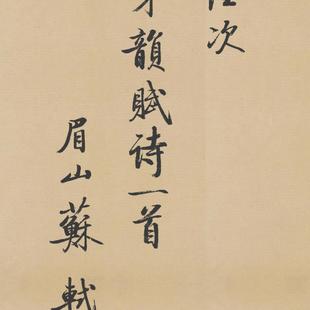 次
韻賦诗一首
眉山蘇軾